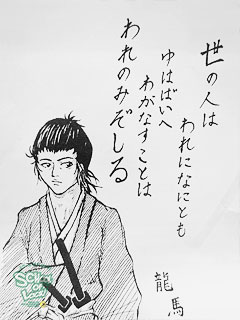 世の人は
われになにとも
ゆはばいへ
わがなすことは
われのみぞしる
龍馬